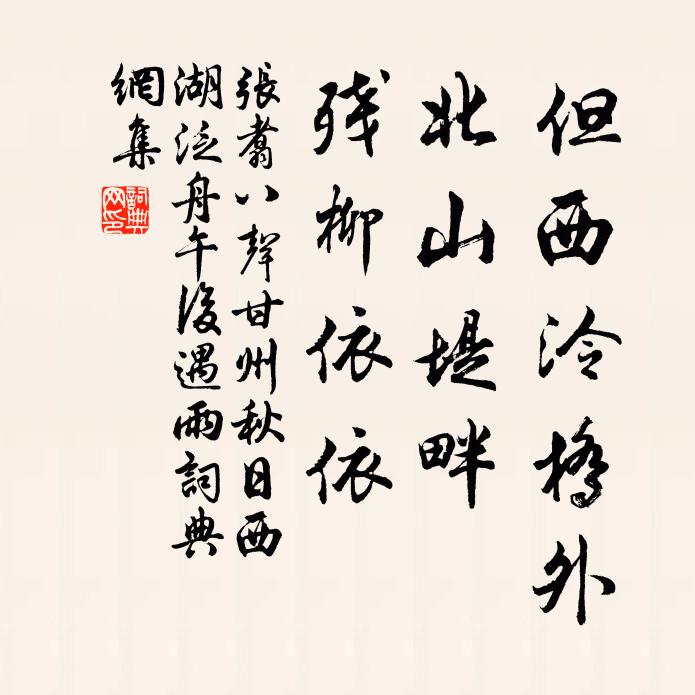 但西泠橋外
北山堤畔
残柳依依
張翥八聲甘州秋日西
湖泛舟午後遇雨詞典
網集
詞典網印